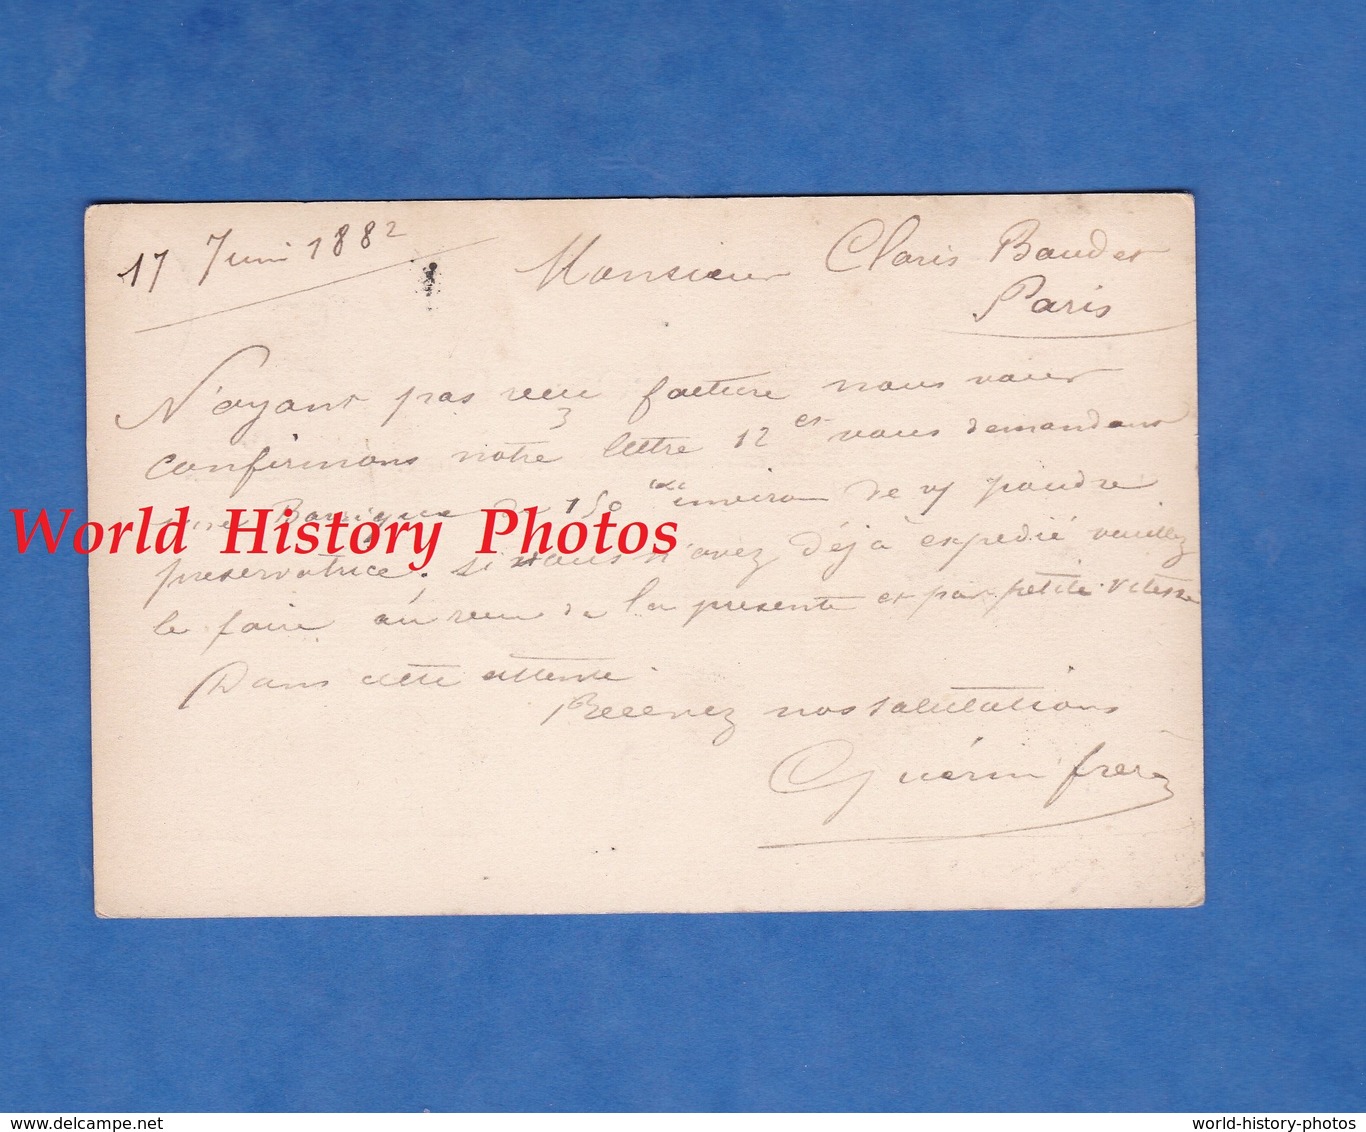 17 Juin 1882
Monsieur Claris Baudet
Paris
N'ayant pas reçu facture nous vous
confirmons notre lettre 12 ct vous demandant
une Barrique de 150 environ de poudre
World History Photos
préservatrice. Si vous n'avez déjà expédié veuillez
le faire au reçu de la présente et par petite vitesse
Dans cette attente
Recevez nos salutations
Guérin frères
http://www.delcampe.net
world-history-photos